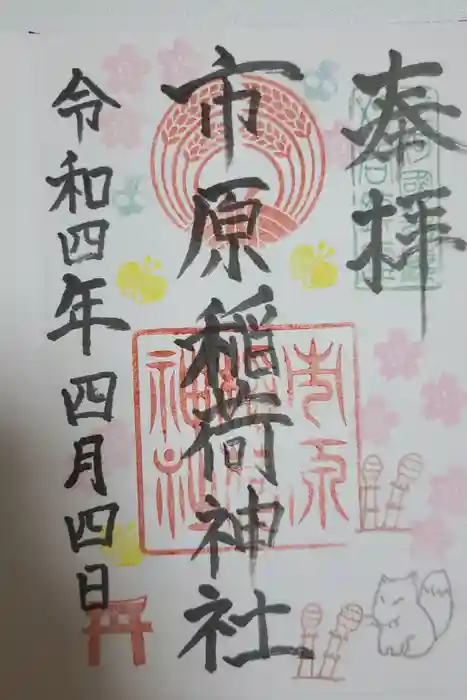 奉拝
市原稲荷神社
令和四年四月四日